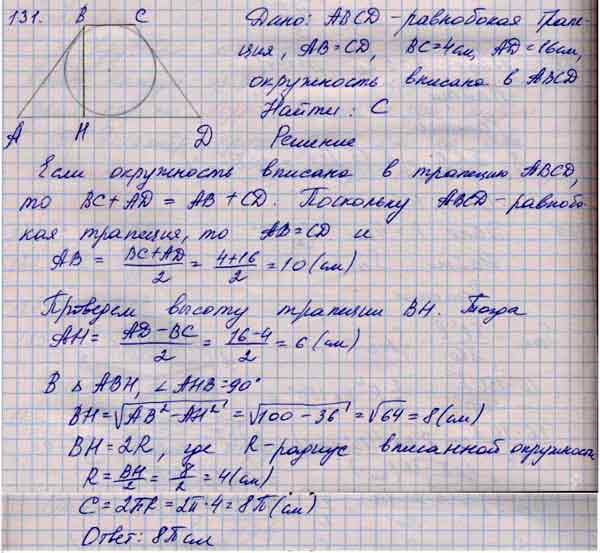 131. B C Дано: ABCD - равнобокая трапе-
ция, AB=CD, BC=4см, AD=16см,
окружность вписана в ABCD
Найти: C
A H D Решение
Если окружность вписана в трапецию ABCD,
то BC+AD = AB+CD. Поскольку ABCD - равнобо-
кая трапеция, то AB=CD и
AB = (BC+AD)/2 = (4+16)/2 = 10 (см)
Проведем высоту трапеции BH. Тогда
AH = (AD-BC)/2 = (16-4)/2 = 6 (см)
В △ ABH, ∠AHB=90°
BH=√(AB²-AH²) = √(100-36) = √64 = 8 (см)
BH=2R, где R-радиус вписанной окружности
R = BH/2 = 8/2 = 4 (см)
C = 2πR = 2π·4 = 8π (см)
Ответ: 8π см